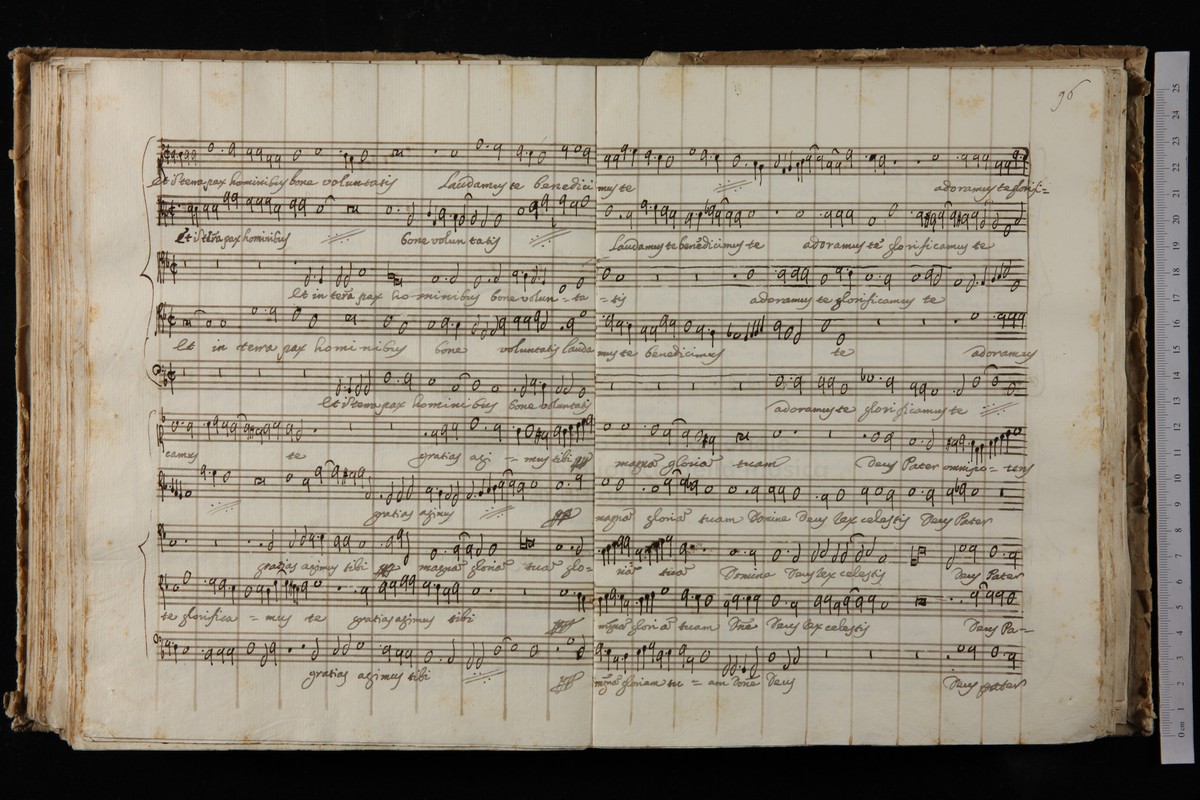 96
Et i terra pax hominibus bone voluntatis Laudamus te benedicimus te adoramus te glorifi=
Et i terra pax hominibus bone voluntatis Laudamus te benedicimus te adoramus te glorificamus te
Et in terra pax hominibus bone volun=ta=tis adoramus te glorificamus te
Et in terra pax hominibus bone voluntatis laudamus te benedicimus te adoramus
Et i terra pax hominibus bone voluntatis adoramus te glorificamus te
camus te gratias agi=mus tibi magna gloria tuam Deus Pater omnipo=tens
gratias agimus magna gloria tuam Domine Deus Rex celestis Deus Pater
gratias agimus tibi magna gloria tua glo=ria tua Domine Deus Rex celestis Deus Pater
te glorifica=mus te gratias agimus tibi magna gloria tuam Dne Deus Rex celestis Deus Pa=
gratias agimus tibi gloriam tu=am Deus Deus pater
25
24
23
22
21
20
19
18
17
16
15
14
13
12
11
10
9
8
7
6
5
4
3
2
1
0 cm